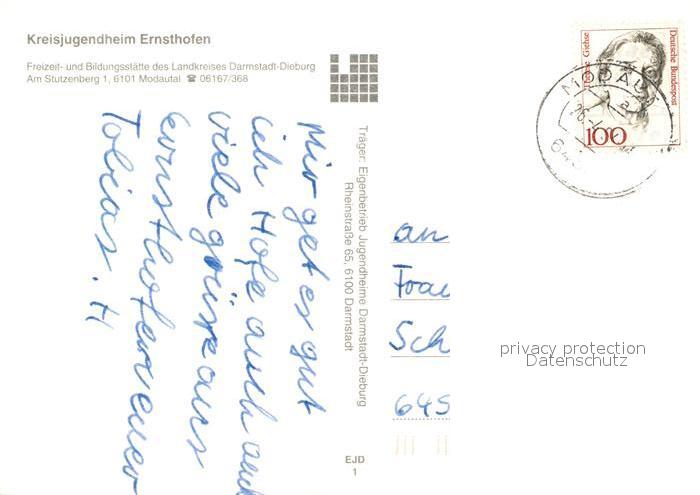 Kreisjugendheim Ernsthofen
Freizeit- und Bildungsstätte des Landkreises Darmstadt-Dieburg
Am Stutzenberg 1, 6101 Modautal ☎ 06167/368
Mir get es gut
ich Hofe auch auch
viele grüse aus
ernsthofen euer
Tobias. H
Träger: Eigenbetrieb Jugendheime Darmstadt-Dieburg
Rheinstraße 65, 6100 Darmstadt
EJD
1
Giehse
Deutsche Bundespost
100
MODAU
an
Frau
Sch
645
privacy protection
Datenschutz